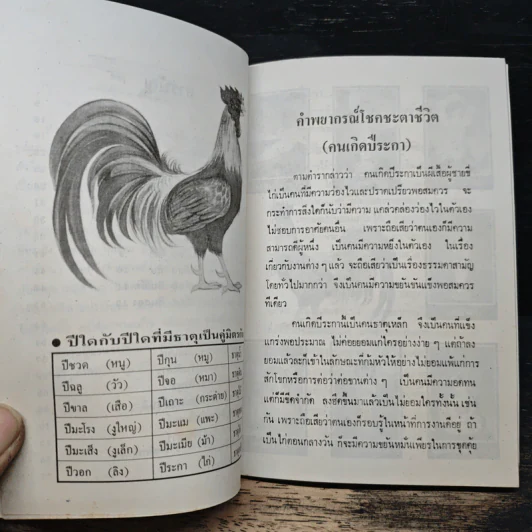 ● ปีใดกับปีใดที่มีธาตุเป็นคู่มิตร
ปีชวด (หนู) ปีกุน (หมู)
ปีฉลู (วัว) ปีจอ (หมา)
ปีขาล (เสือ) ปีเถาะ (กระต่าย)
ปีมะโรง (งูใหญ่) ปีมะแม (แพะ)
ปีมะเส็ง (งูเล็ก) ปีมะเมีย (ม้า)
ปีวอก (ลิง) ปีระกา (ไก่)
คำพยากรณ์โชคชะตาชีวิต
(คนเกิดปีระกา)
ตามตำรากล่าวว่า คนเกิดปีระกาเป็นผีเสื้อผู้ชายขี่
ไก่เป็นคนที่มีความว่องไวและปราดเปรียวพอสมควร จะ
กระทำการสิ่งใดก็นับว่ามีความ แคล่วคล่องว่องไวในตัวเอง
ไม่ชอบการอาศัยคนอื่น เพราะถือเสียว่าคนเองก็มีความ
สามารถดีผู้หนึ่ง เป็นคนมีความหยิ่งในตัวเอง ในเรื่อง
เกี่ยวกับงานต่าง ๆ แล้ว จะถือเสียว่าเป็นเรื่องธรรมดาสามัญ
โดยทั่วไปมากกว่า จึงเป็นคนมีความขยันขันแข็งพอสมควร
ทีเดียว
คนเกิดปีระกานี้เป็นคนธาตุเหล็ก จึงเป็นคนที่แข็ง
แกร่งพอประมาณ ไม่ค่อยยอมแก่ใครอย่างง่าย ๆ แต่ถ้าลง
ยอมแล้วละก็เข้าในลักษณะที่ก้มหัวให้อย่างไม่ยอมแพ้แก่การ
สักโขกหรือการต่อว่าต่อขานต่าง ๆ เป็นคนมีความอดทน
แต่ก็มีขีดจำกัด ลงฮึดขึ้นมาแล้วเป็นไม่ยอมใครทั้งนั้น เช่น
กัน เพราะถือเสียว่าตนเองก็รอบรู้ในหน้าที่การงานดีอยู่ ถ้า
เป็นไก่ตอนกลางวัน ก็จะมีความหมั่นเพียรในการขุดคุ้ย